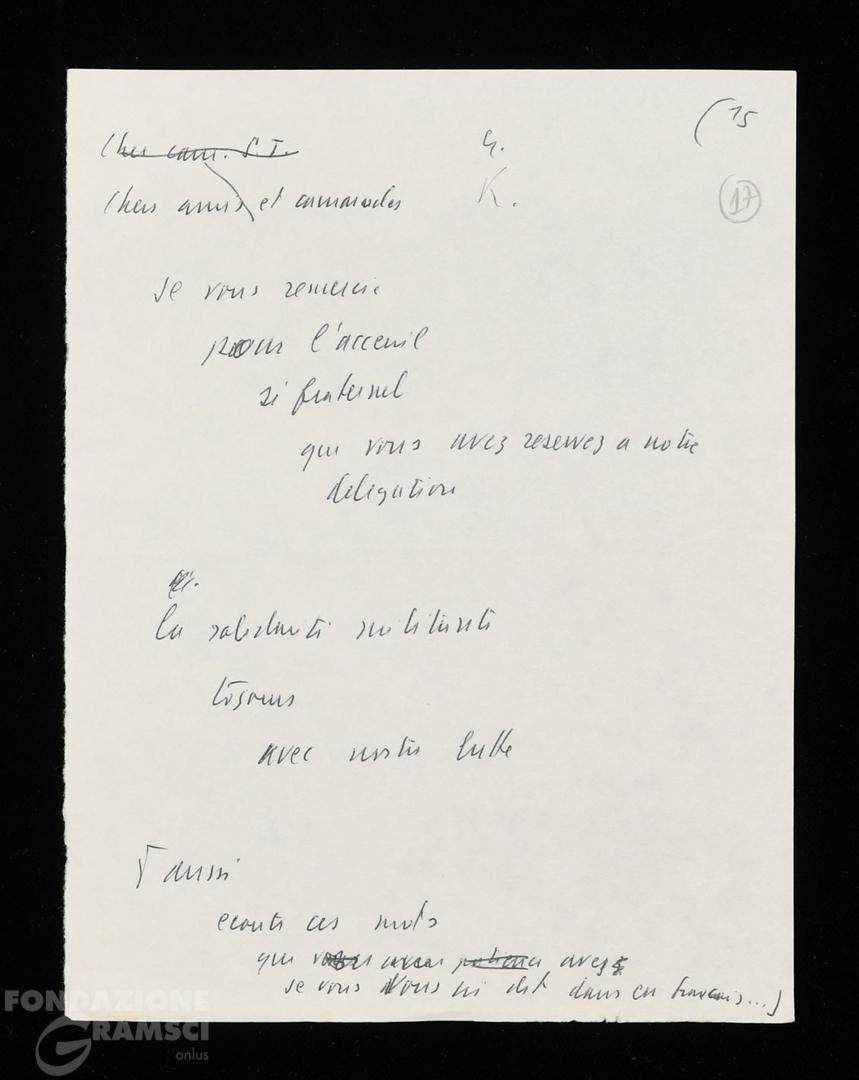 (15
Cher cam. S.T. G.
Chers amis et camarades K.
17
Je vous remercie
pour l'acceuil
si fraternel
que vous avez reservez a notre
delegation
la solidarité militante
tojours
avec nostre lutte
[ aussi
ecouté ces mots
que avec patience avez
je vous ai dit dans ce francais...]
FONDAZIONE
GRAMSCI
onlus